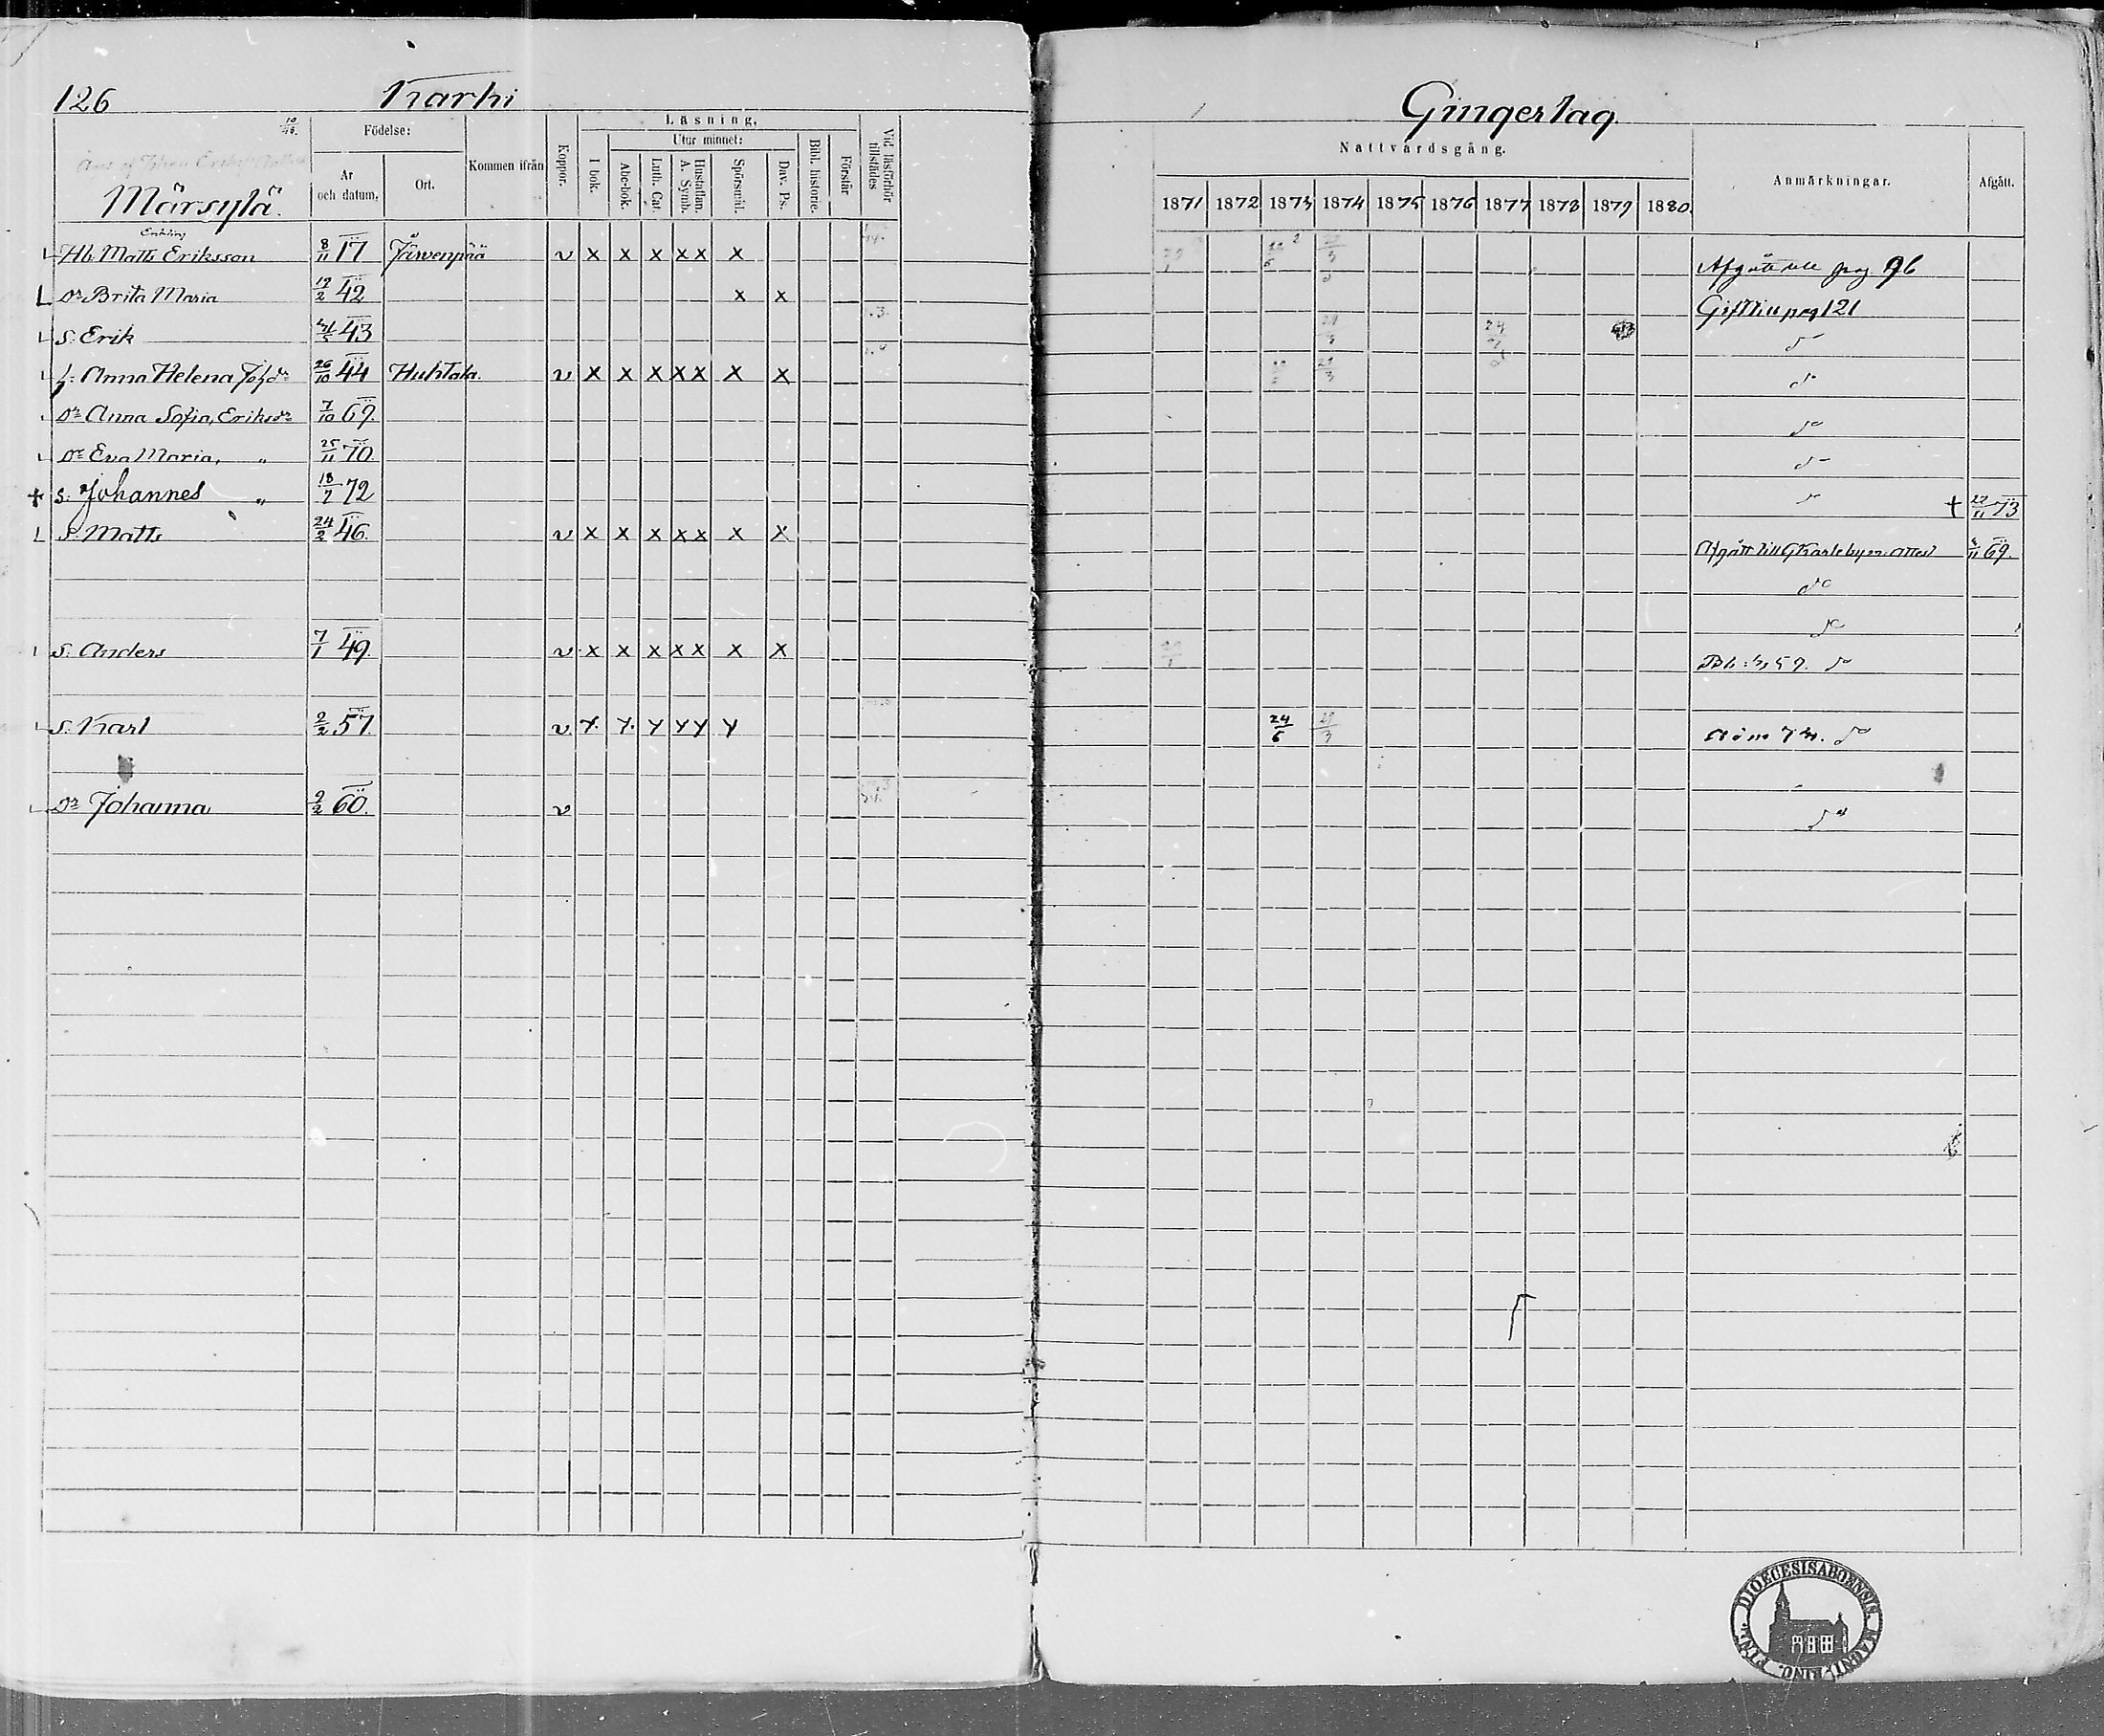 126 Karhi
Gingerlag.
Födelse:
Läsning,
Utur minnet:
År och datum.
Ort.
Kommen ifrån
Koppor.
I bok.
Abc-bok.
Luth. Cat.
Hustaflan. A. Symb.
Spörsmål.
Dav. Ps.
Bibl. historie.
Förstår
Vid läsförhör tillstädes
Nattvardsgång.
1871 1872 1873 1874 1875 1876 1877 1878 1879 1880
Anmärkningar.
Afgått.
Märsylä.
Enkling
Hb. Matts Eriksson 8/11 17 Järvenpää v x x x x x x Afgått till pag. 96
Dr Brita Maria 12/2 42 x x Gift till pag 121
S. Erik 43 do
h. Anna Helena Johdr 26/10 44 Huhtala. v x x x x x x x do
Dr Anna Sofia, Eriksdr 7/10 69. do
Dr Eva Maria, " 25/11 70. do
+ S. Johannes " 18/7 72 do + 73
S. Matts 24/2 46. v x x x x x x x Afgått till GKarleby m. attest 69.
do
do
S. Anders 7/1 49. v x x x x x x x do
S. Karl 2/2 57 v y y y y y y 24/6 do
Dr Johanna 9/2 60. v do
DIOECESIS ABOENSIS MAGNI DUC. FINL.